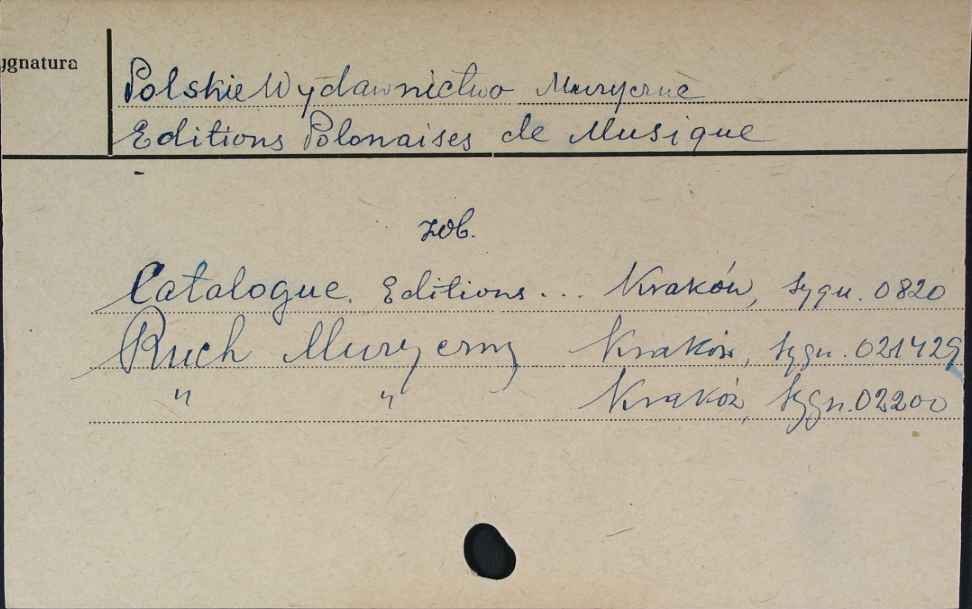 ygnatura
Polskie Wydawnictwo Muzyczne
Editions Polonaises de Musique
zob.
Catalogue. Editions... Kraków, sygn. 0820
Ruch Muzyczny Kraków, sygn. 021429
" " Kraków, sygn. 02200